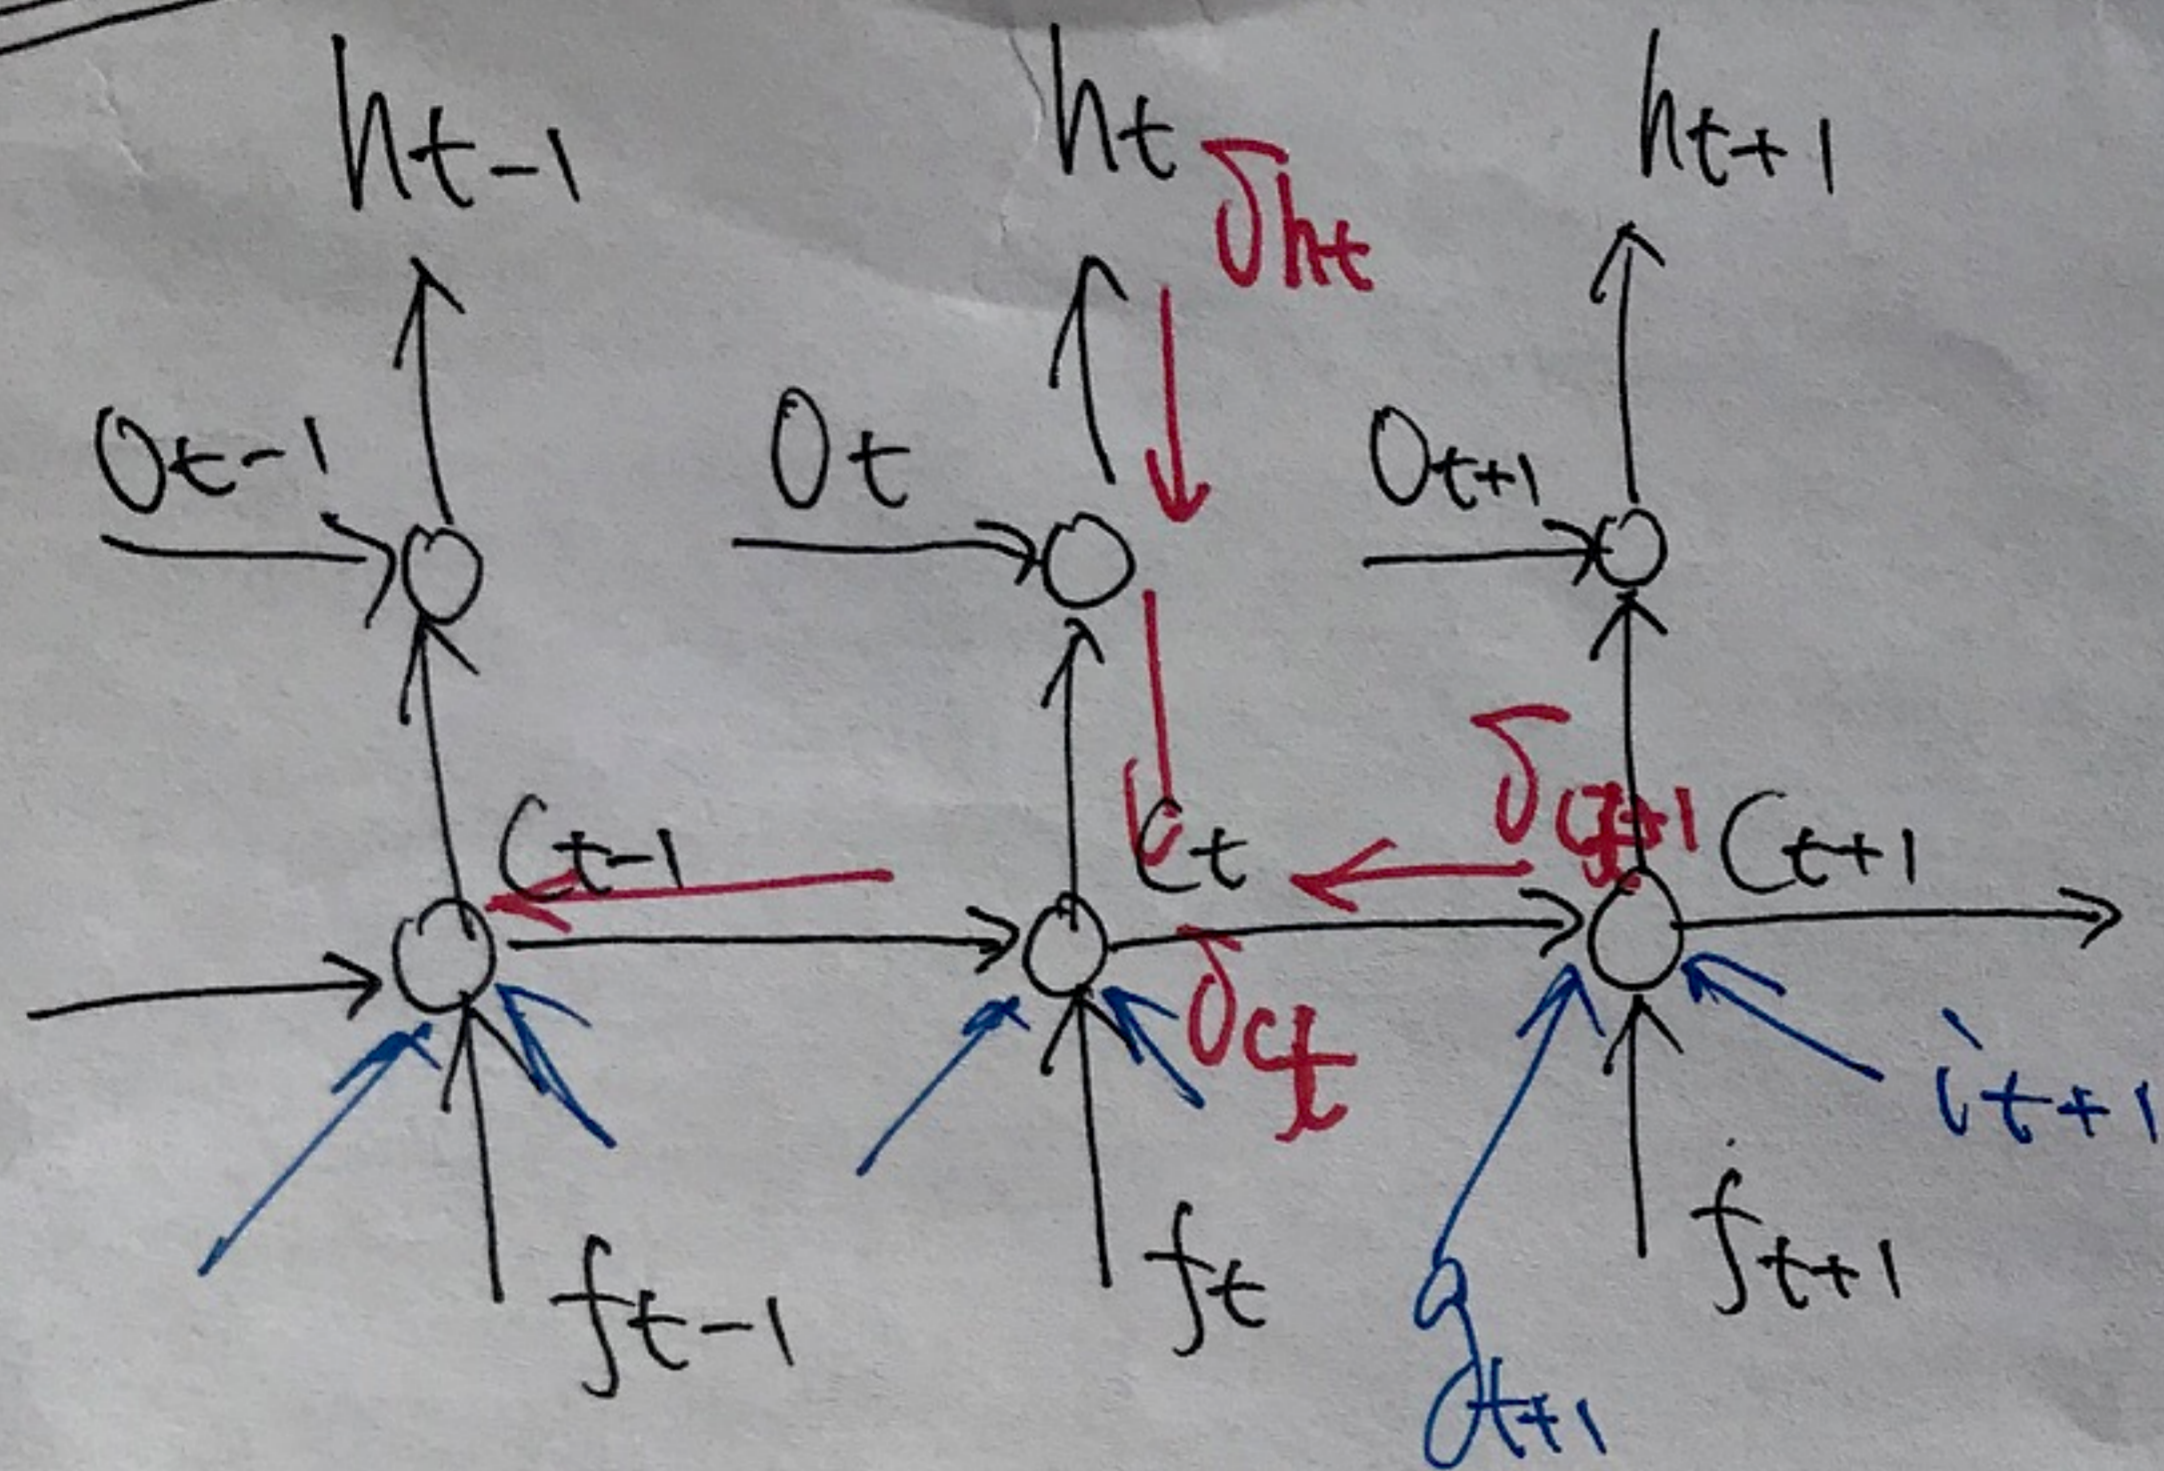 ht-1 ht δht ht+1
Ot-1 Ot Ot+1
Ct-1 Ct δct+1 Ct+1
δct it+1
ft-1 ft gt+1 ft+1